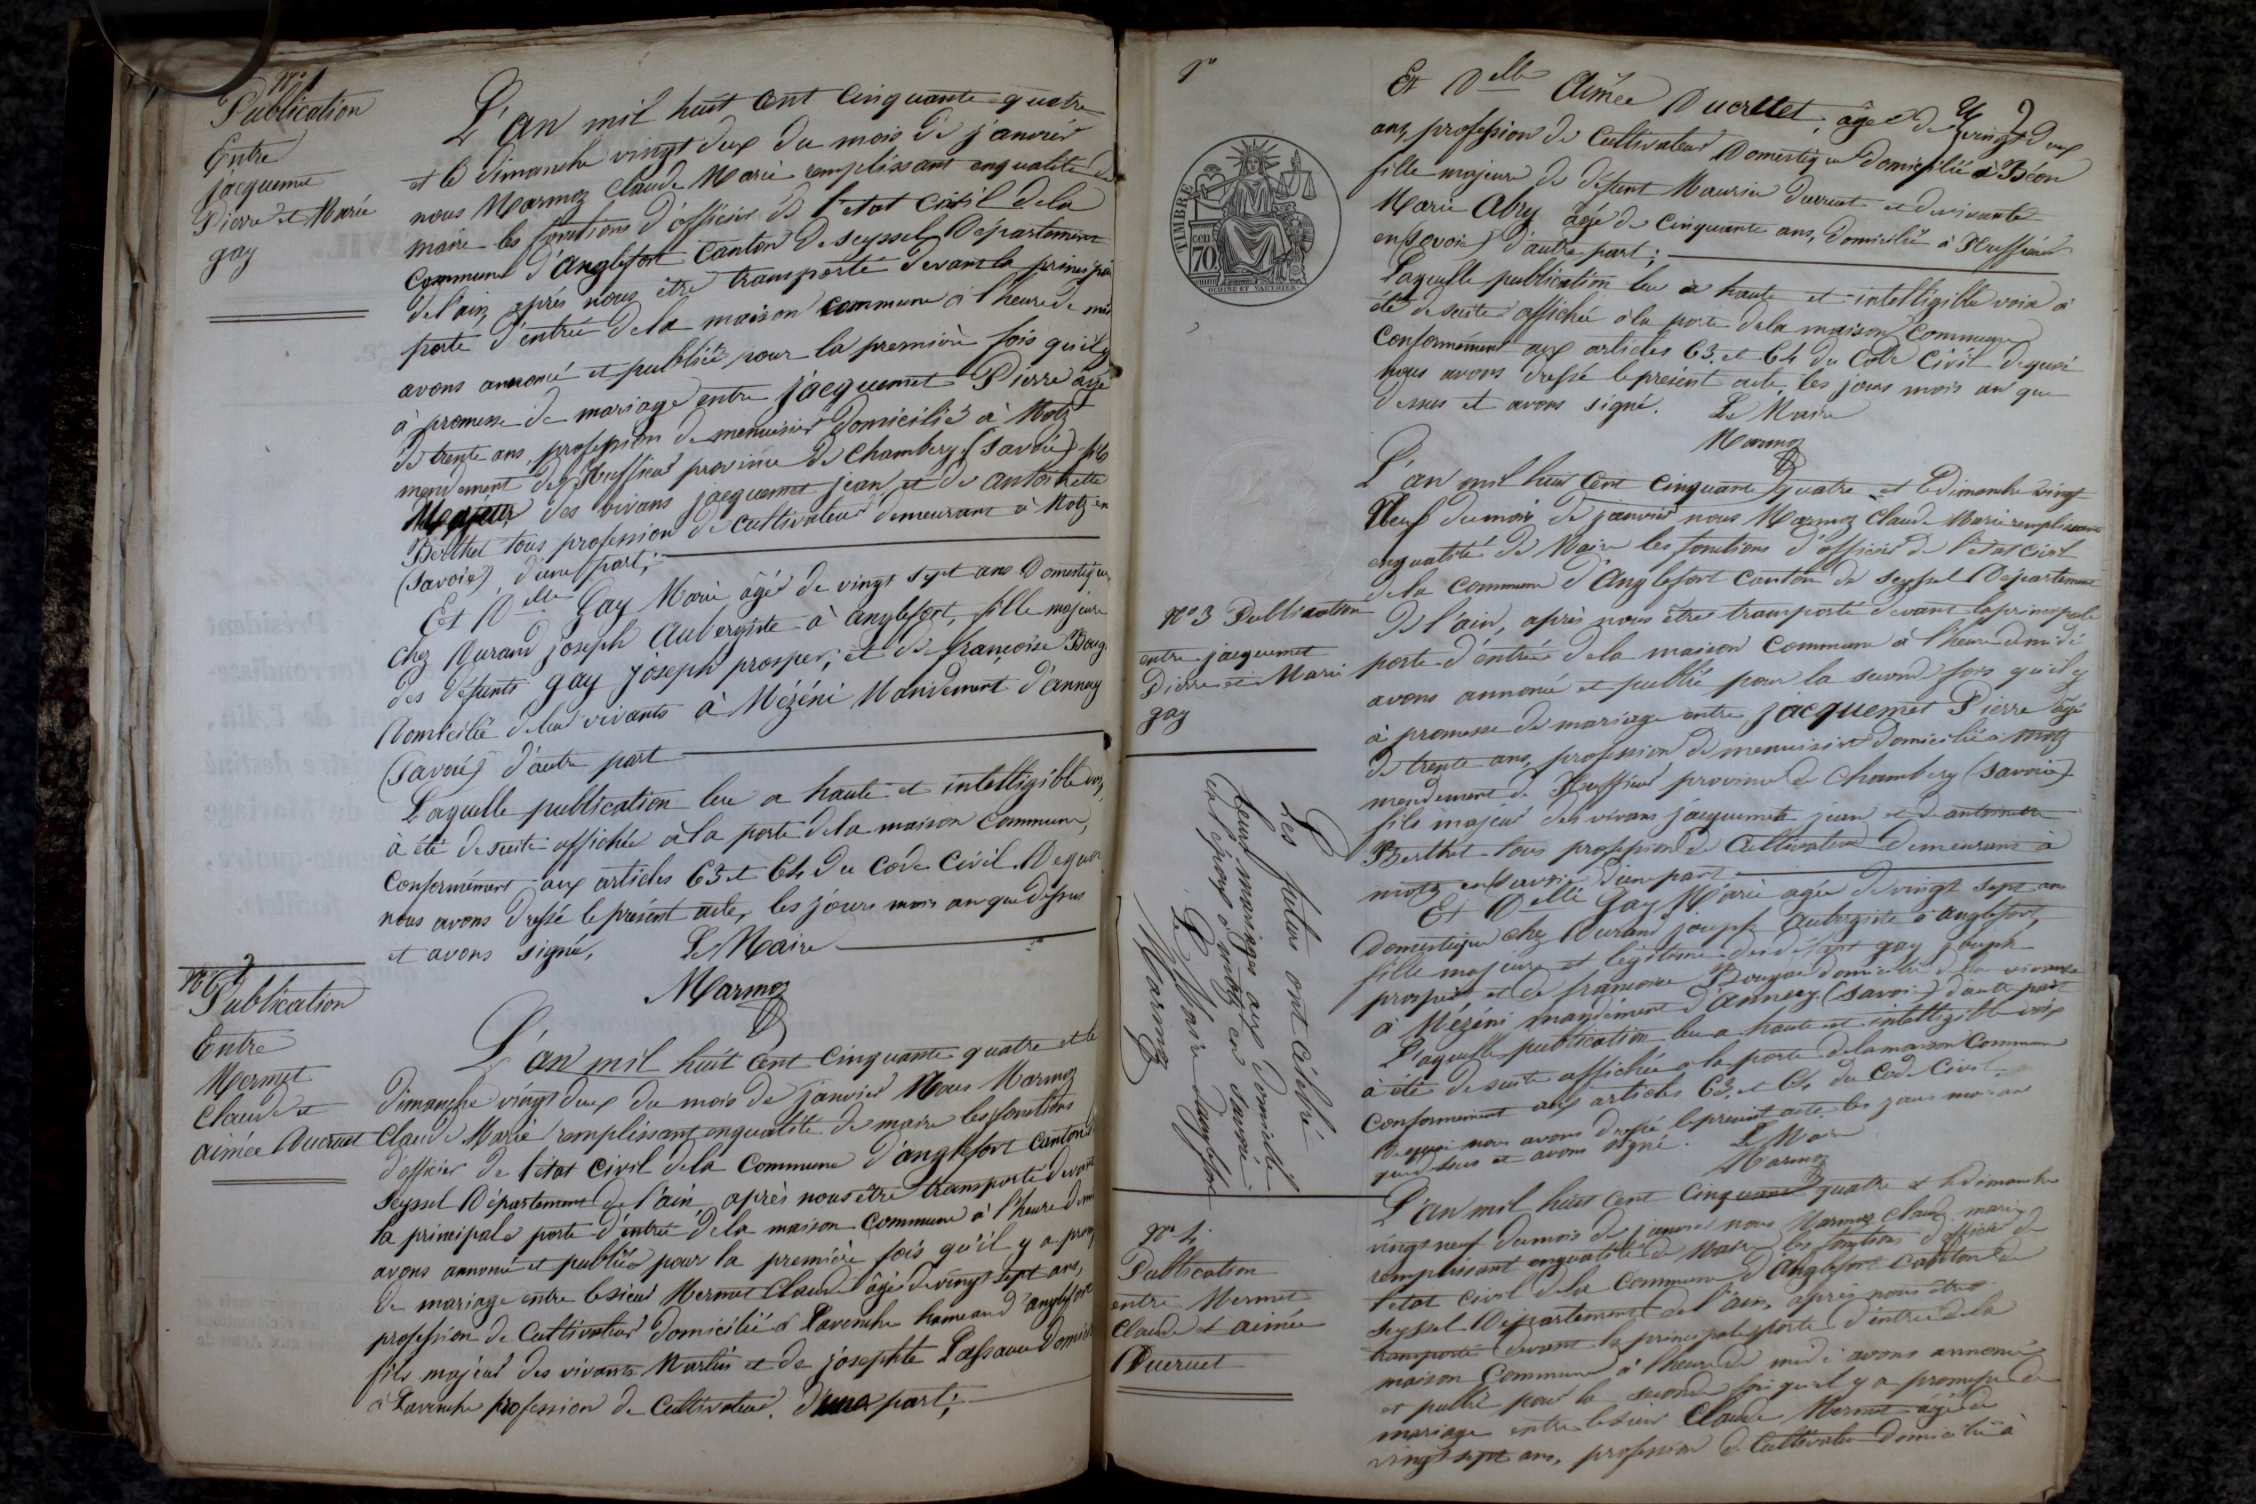 N° 1
Publication
Entre
jacquemet
Pierre et Marie
gay
L'an mil huit cent cinquante quatre
et le dimanche vingt deux du mois de janvier
nous Marmoz Claude Marie remplissant enqualité de
maire les fonctions d'officier de l'etat civil dela
commune d'anglefort canton de seyssel Département
del'ain, après nous être transporté devant la principa
porte d'entrée dela maison commune à l'heure de mi
avons annoncé et publiée pour la première fois qu'il y
à promesse de mariage entre jacquemet Pierre agé
de trente ans, profession de menuisier domicilié à Motz
mendement de Ruffieux province de Chambery (Savoie) fils
Majeur des vivans jacquemet jean, et de antoinette
Berthet tous profession de cultivateur demeurans à Motz en
(Savoie), d'une part;
Et Delle Gay Marie âgé de vingt sept ans Domestique
chez Durand joseph Aubergiste à anglefort, fille majeure
des défunts gay joseph prosper, et de françoise Boug
Domiciliée deleur vivants à Mézéni Mandement d'annecy
(Savoie) d'autre part
Laquelle publication lue a haute et intelligible voix,
à été desuite affichée àla porte dela maison commune,
Conformément aux articles 63 et 64 du Code Civil. Dequoi
nous avons dressé le présent acte, les jours mois an que dessus
et avons signé, Le Maire
Marmoz
N° 2
Publication
Entre
Mermet
Claude et
aimée Ducruet
L'an mil huit cent cinquante quatre et le
dimanche vingt deux du mois de janvier Nous Marmoz
Claude Marie remplissant enqualité de maire les fonctions
d'officier de l'état civil dela Commune d'anglefort canton d
Seyssel Département de l'ain, après nous être transporté devant
la principale porte d'entrée dela maison commune à l'heure demi
avons annoncé et publiée pour la première fois qu'il y a prom
de mariage entre lesieur Mermet Claude âgé de vingt sept ans,
profession de Cultivateur domicilié à Lavenche hameau d'anglefort
fils majeur des vivants Martin et de josephte Passaux Domicil
à Lavenche profession de Cultivateur. d'une part;
Et Delle Aimée Ducretet, âgée de vingt deux
ans, profession de Cultivateur Domestique domiciliée à Béon
fille majeure de défunt Maurice ducruet et de vivante
Marie Abry agée de cinquante ans, Domicilié à Ruffieux
en savoie) d'autre part;
Laquelle publication lue a haute et intelligible voix à
été desuite affichée àla porte dela maison commune
Conformément aux articles 63. et 64 du Code Civil dequoi
nous avons dressé leprésent acte, les jours mois an que
dessus et avons signé. Le Maire
Marmoz
TIMBRE
70
N° 3 Publication
entre jacquemet
Pierre et Marie
gay
L'an mil huit cent cinquante quatre et le dimanche vingt
Neuf dumois de janvier nous Marmoz Claude Marie remplissant
enqualité de Maire les fonctions d'officier de l'état civil
dela commune d'Anglefort canton de seyssel Département
de l'ain, après nous être transporté devant la principale
porte d'entrée dela maison commune à l'heure demidi
avons annoncé et publiée pour la second fois qu'il y
à promesse de mariage entre jacquemet Pierre âgé
de trente ans, profession de menuisier domicilié à motz
mendement de Ruffieux province de Chambery (Savoie)
fils majeur des vivans jacquemet jean et de antoinette
Berthet tous profession de Cultivateur demeurans à
motz en Savoie d'une part
Et Delle Gay Marie agée de vingt sept ans
Domestique chez Durand joseph Aubergiste à anglefort,
fille majeure et légitime des défunt gay joseph
prosper et de francoise Bougue domiciliés de leur vivants
à Mézéni mandement d'Annecy (Savoie) d'autre part
Laquelle publication lue a haute et intelligible voix
à été desuite affichée a la porte dela maison Commune
Conformément aux articles 63. et 64 du Code Civil.
Dequoi nous avons dressé leprésent acte les jours mois an
que dessus et avons signé. Le Maire
Marmoz
Les futurs ont célébré
leurs mariages aux domicile
Le Maire d'anglefort
Marmoz
N° 4
Publication
entre Mermet
Claude et aimée
Ducruet
L'an mil huit cent cinquante quatre et le dimanche
vingt neuf dumois de janvier nous Marmoz claude marie
remplissant enqualité de Maire les fonctions d'officier de
l'état civil dela Commune d'Anglefort canton de
Seyssel Département de l'ain, après nous être
transporté devant la principale porte d'entrée dela
maison Commune à l'heure de midi avons annoncé
et publié pour la seconde fois qu'il y a promesse de
mariage entre lesieur Claude Mermet agé de
vingt sept ans, profession de Cultivateur domicilié à